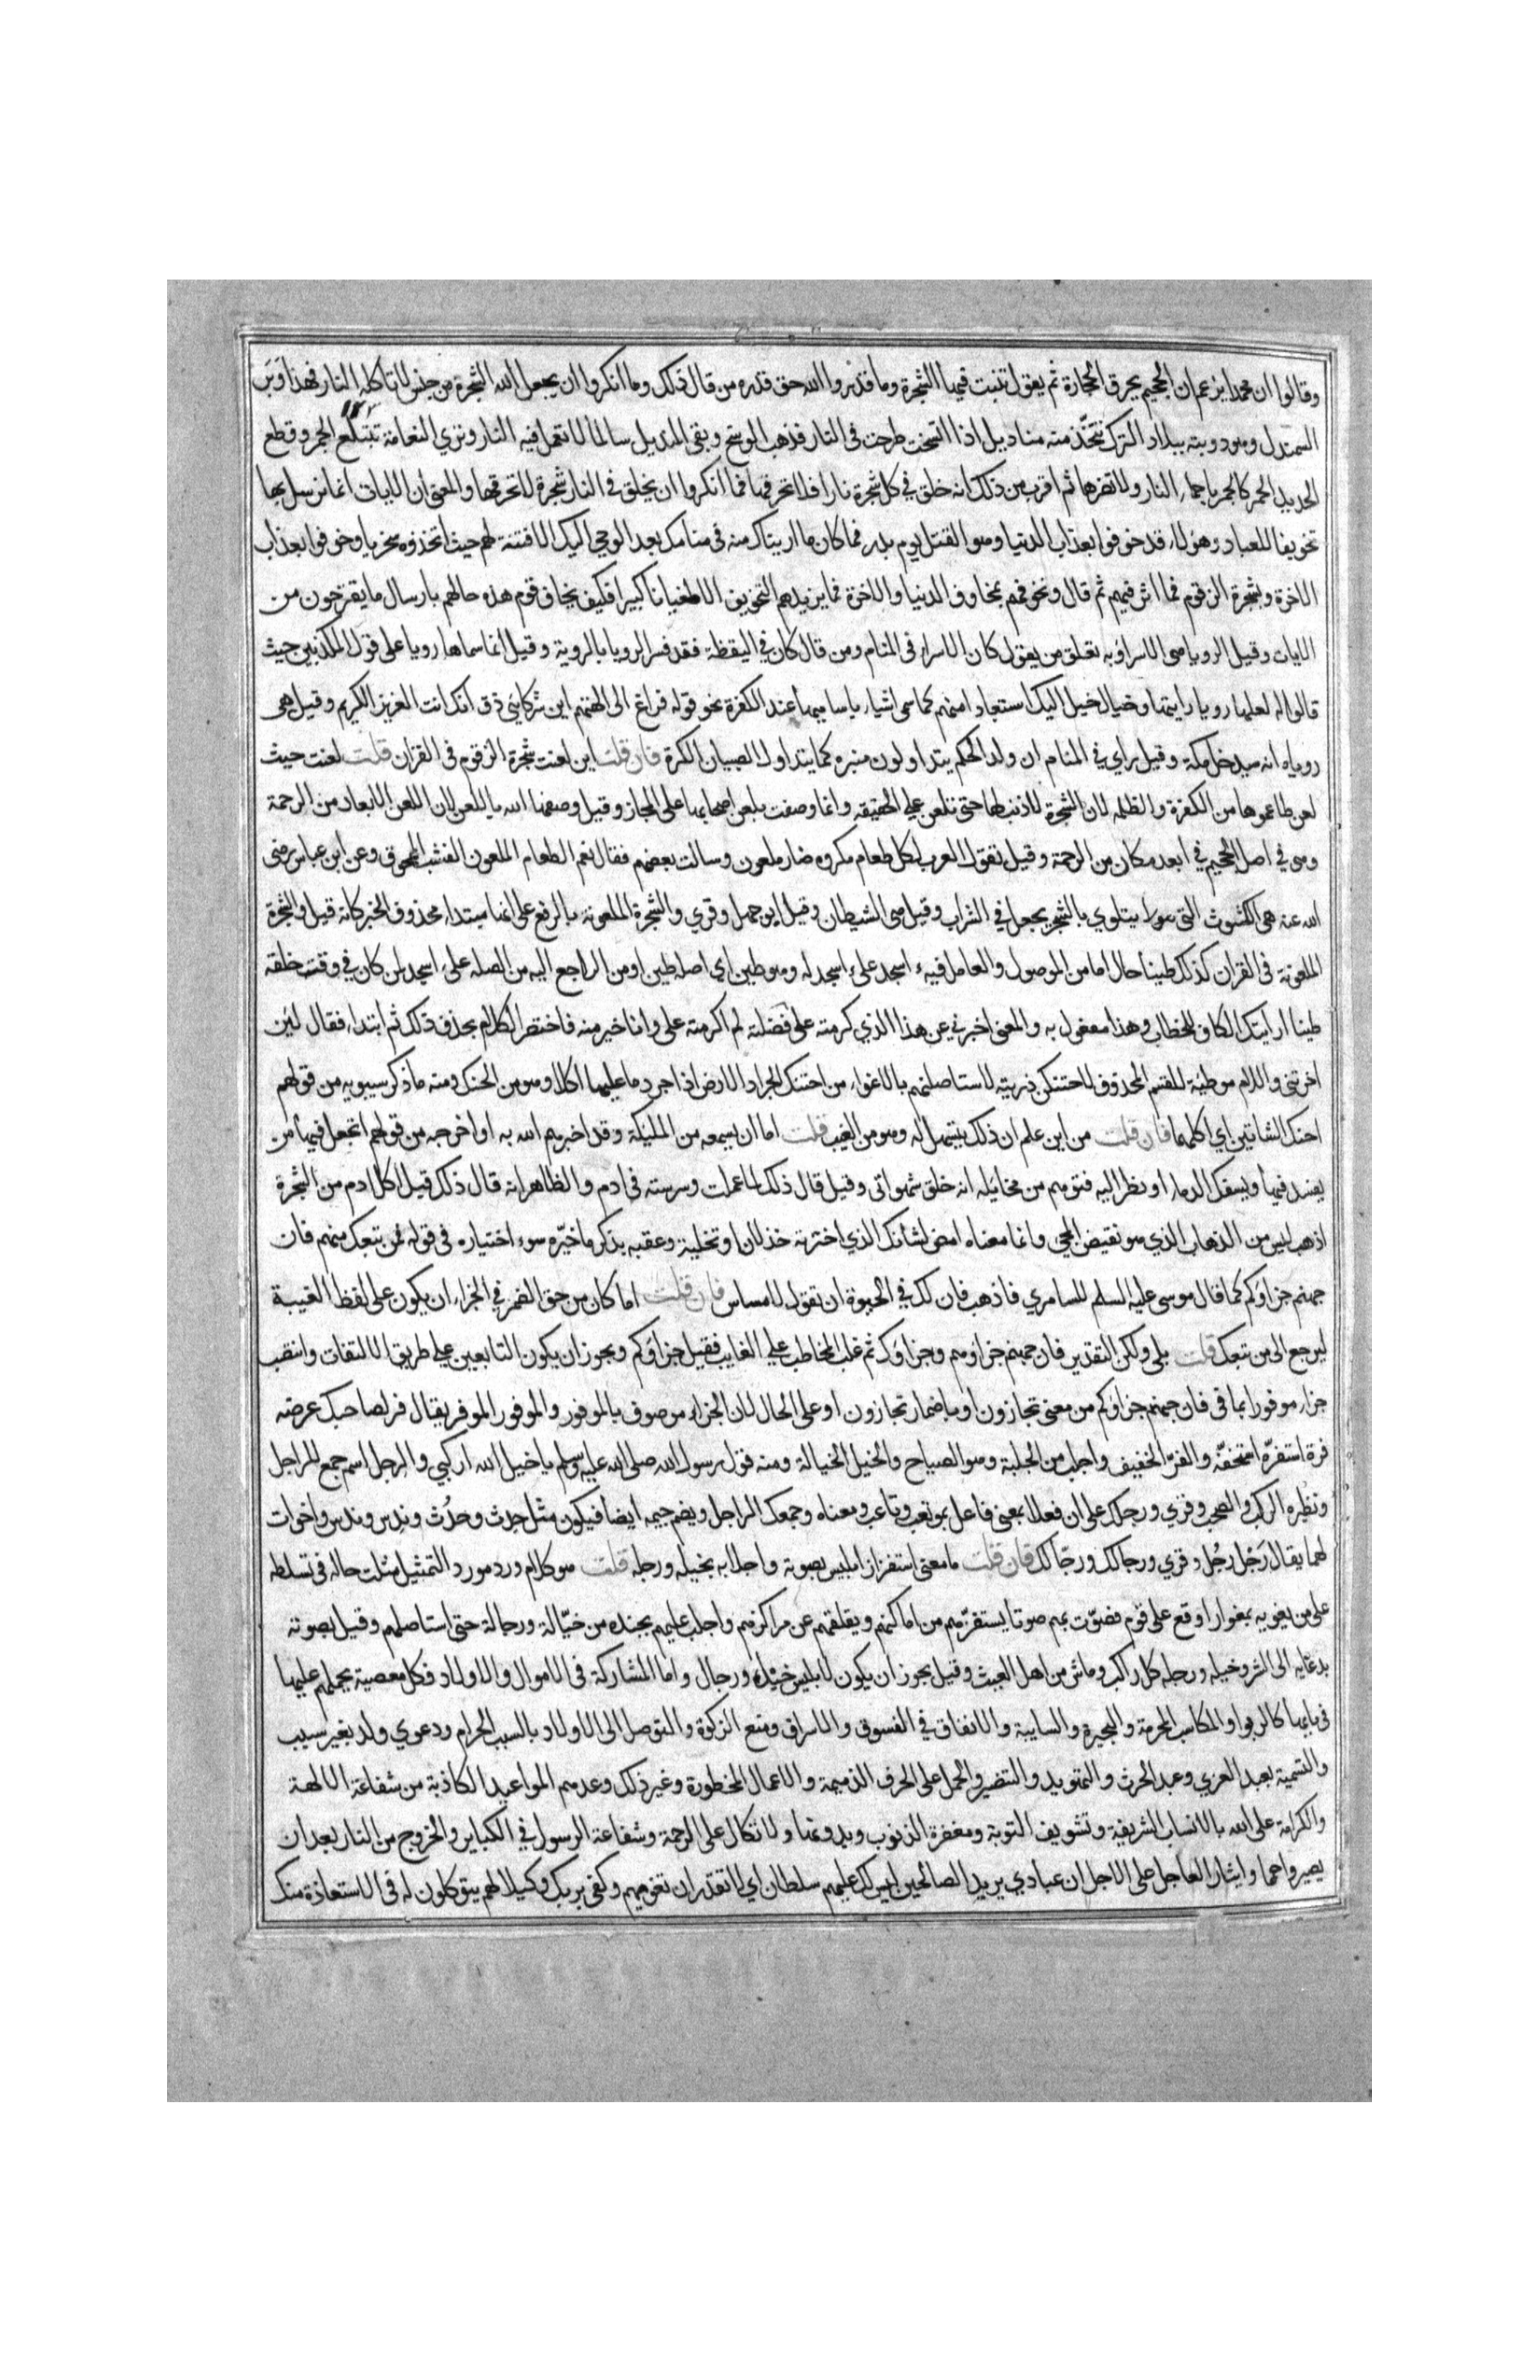 وقالوا ان محمدا يزعم ان الجحيم يحرق الحجارة ثم يقول تنبت فيها الشجرة وما قدروا الله حق قدره من قال ذلك وما انكروا ان يجعل الله الشجرة من جنس لا تاكله النار فهذا وبر
السمندل وهو دويبة ببلاد الترك تتخذ منه مناديل اذا اتسخت طرحت فى النار فذهب الوسخ وبقى المنديل سالما لا تعمل فيه النار وتري النعامة تبتلع الجمر وقطع
الحديد الحمر كالجمر باحماء النار ولا تضرها ثم اقرب من ذلك انه خلق في كل شجرة نارا فلا تحرقها فما انكروا ان يخلق في النار شجرة لا تحرقها والمعنى ان الايات انما نرسل بها
تخويفا للعباد وهؤلاء قد خوفوا بعذاب الدنيا وهو القتل يوم بدر فما كان ما اريناك منه فى منامك بعد الوحي اليك الا فتنة لهم حيث اتخذوه سخريا وخوفوا بعذاب
الاخرة وبشجرة الزقوم فما اثر فيهم ثم قال ونخوفهم بمخاوف الدنيا والاخرة فما يزيدهم التخويف الا طغيانا كبيرا فكيف يخاف قوم هذه حالهم بارسال ما يقترحون من
الايات وقيل الرويا هى الاسراء وبه تعلق من يقول كان الاسراء فى المنام ومن قال كان في اليقظة فقد فسر الرويا بالروية وقيل انما سماها رويا على قول المكذبين حيث
قالوا له لعلها رويا رايتها وخيال خيل اليك استبعادا منهم كما سمى اشياء باساميها عند الكفرة نحو قوله فراغ الى الهتهم اين شركائي ذق انك انت العزيز الكريم وقيل هى
روياه انه سيدخل مكة وقيل راي في المنام ان ولد الحكم يتداولون منبره كما يتداول الصبيان الكرة فان قلت اين لعنت شجرة الزقوم فى القران قلت لعنت حيث
لعن طاعموها من الكفرة والظلمه لان الشجرة لا ذنب لها حتى تلعن على الحقيقه وانما وصفت بلعن اصحابها على المجاز وقيل وصفها الله باللعن لان اللعن الابعاد من الرحمة
وهى في اصل الجحيم في ابعد مكان من الرحمة وقيل تقول العرب لكل طعام مكروه ضار ملعون وسالت بعضهم فقال نعم الطعام الملعون القشب الممحوق وعن ابن عباس رضى
الله عنه هى الكشوث التى يتلوي بالشجر يجعل في الشراب وقيل هى الشيطان وقيل ابو جهل وقري والشجرة الملعونة بالرفع على انها مبتداء محذوف الخبر كانه قيل والشجرة
الملعونة فى القران كذلك طينا حال اما من الموصول والعامل فيه ءاسجد على ءاسجد له وهو طين اي اصله طين او من الراجع اليه من الصله على ءاسجد لمن كان في وقت خلقه
طينا ارايتك الكاف للخطاب وهذا مفعول به والمعنى اخبرني عن هذا الذي كرمته على فضلته لم اكرمته على وانا خير منه فاختصر الكلام بحذف ذلك ثم ابتداء فقال لئن
اخرتني واللام موطئة للقسم المحذوف لاحتنكن ذريته لاستاصلنهم بالاغواء من احتنك الجراد الارض اذا اجرد ما عليها اكلا وهو من الحنك ومنه ما ذكر سيبويه من قولهم
احنك الشاتين اي اكلهما فان قلت من اين علم ان ذلك يتسهل له وهو من الغيب قلت اما ان يسمعه من المليكة وقد اخبرهم الله به او اخرجه من قولهم اتجعل فيها من
يفسد فيها ويسفك الدماء او نظر اليه فتوهم من مخائله انه خلق شهواني وقيل قال ذلك لما عملت وسوسته في ادم والظاهر انه قال ذلك قبل اكل ادم من الشجرة
اذهب ليس من الذهاب الذي هو نقيض المجي وانما معناه امض لشانك الذي اخترته خذلانا وتخلية وعقبه بذكر ما جره سوء اختياره فى قوله فمن تبعك منهم فان
جهنم جزاؤكم كما قال موسى عليه السلم للسامري فاذهب فان لك في الحيوة ان تقول لا مساس فان قلت اما كان من حق الضمير في الجزاء ان يكون على لفظ الغيبة
ليرجع الى من تبعك قلت بلى ولكن التقدير فان جهنم جزاوهم وجزاؤك ثم غلب المخاطب على الغايب فقيل جزاؤكم ويجوز ان يكون التابعين على طريق الالتفات وانتصب
جزاء موفورا بما فى فان جهنم جزاؤكم من معنى تجازون او باضمار تجازون او على الحال لان الجزاء موصوف بالموفور والموفور الموفر يقال فر لصاحبك عرضه
فرة استفزه استخفه والفز الخفيف واجلب من الجلبة وهو الصياح والخيل الخيالة ومنه قول رسول الله صلى الله عليه وسلم يا خيل الله اركبي والرجل اسم جمع للراجل
ونظيره الركب والصحب وقري ورجلك على ان فعلا بمعنى فاعل نحو تعب وتاعب ومعناه وجمعك الراجل ويضم جيمه ايضا فيكون مثل حدث وحدث وندس وندس واخوات
لهما يقال رجل رجل وقري ورجالك ورجالك فان قلت ما معنى استفزاز ابليس بصوته واجلابه بخيله ورجله قلت هو كلام ورد مورد التمثيل مثلت حاله فى تسلطه
على من يغويه بمغوار اوقع على قوم فصوت بهم صوتا يستفزهم من اماكنهم ويقلقهم عن مراكزهم واجلب عليهم بجنده من خيالة ورجالة حتى استاصلهم وقيل بصوته
بدعائه الى الشر وخيله ورجله كل راكب وماش من اهل العيث وقيل يجوز ان يكون لابليس خيل ورجال واما المشاركة فى الاموال والاولاد فكل معصية يحملهم عليها
فى بابهما كالربوا والمكاسب المحرمة والبحيرة والسايبة والانفاق في الفسوق والاسراف ومنع الزكوة والتوصل الى الاولاد بالسبب الحرام ودعوي ولد بغير سبب
والتسمية بعبد العزي وعبد الحرث والتهويد والتنصير والحمل على الحرف الذميمة والاعمال المحظورة وغير ذلك وعدهم المواعيد الكاذبة من شفاعة الالهة
والكرامة على الله بالانساب الشريفة وتسويف التوبة ومغفرة الذنوب وبدونها ولاتكال على الرحمة وشفاعة الرسول في الكباير والخروج من النار بعد ان
يصيروا حمما وايثار العاجل على الاجل ان عبادي يريد الصالحين ليس لك عليهم سلطان اي لا تقدر ان تغويهم وكفى بربك وكيلا لهم يتوكلون له فى الاستعاذة منك